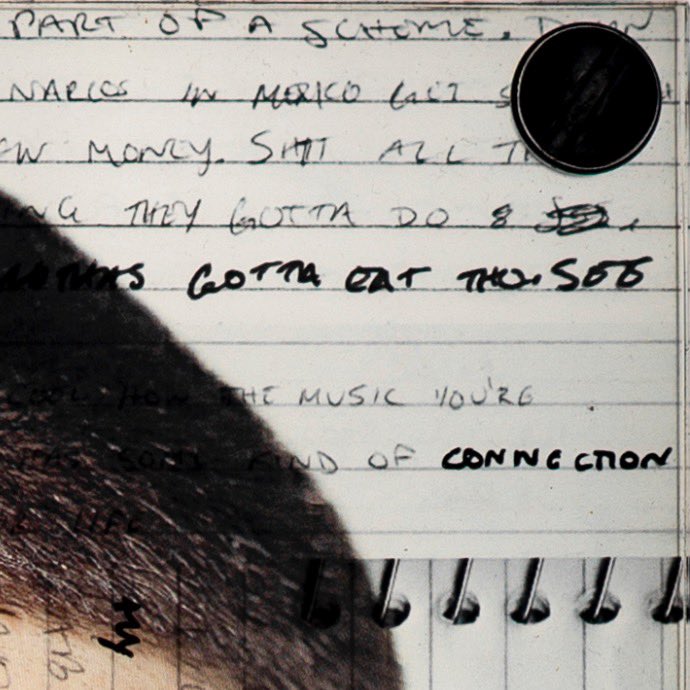 PART OF A SCHEME. DOWN
NARCOS IN MEXICO GET
MONEY. SHIT ALL
THEY GOTTA DO
GOTTA EAT THO. SEE
COOL HOW THE MUSIC YOU'RE
HAS SOME KIND OF CONNECTION
LIFE